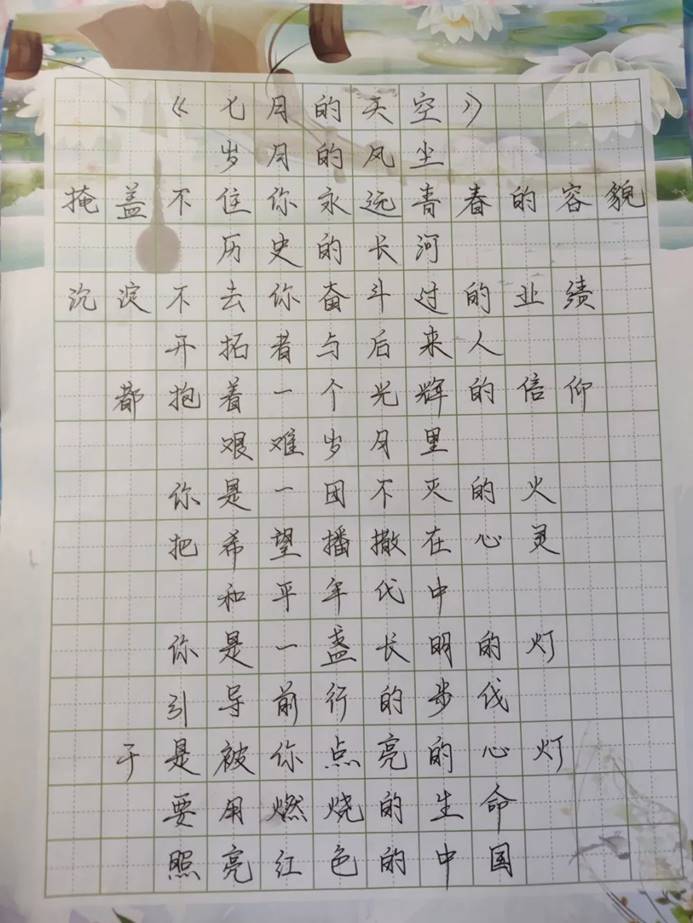 《七月的天空》
岁月的风尘
掩盖不住你永远青春的容貌
历史的长河
沉淀不去你奋斗过的业绩
开拓者与后来人
都抱着一个光辉的信仰
艰难岁月里
你是一团不灭的火
把希望播撒在心灵
和平年代中
你是一盏长明的灯
引导前行的步伐
于是被你点亮的心灯
要用燃烧的生命
照亮红色的中国